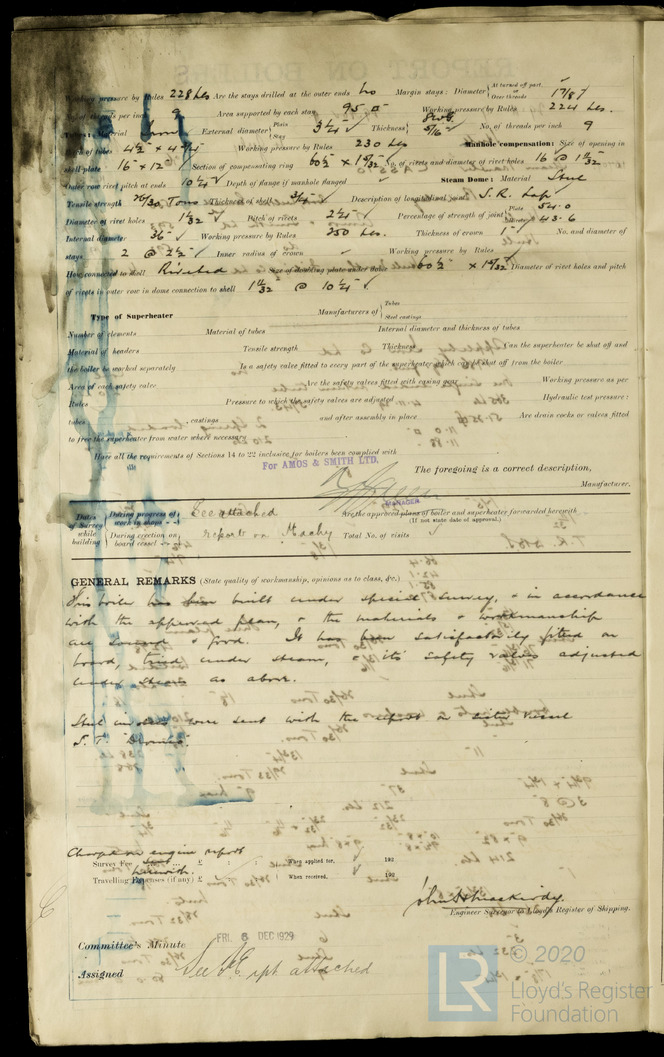 Working pressure by Rules 228 lbs Are the stays drilled at the outer ends No Margin stays: Diameter { At turned off part, or Over threads 1 7/8" ✓
No. of threads per inch 9 Area supported by each stay 95 □" Working pressure by Rules 224 lbs.
Tubes: Material Iron External diameter { Plain Stay 3 1/4" ✓ Thickness { 8 WG 5/16" ✓ No. of threads per inch 9
Pitch of tubes 4 1/2" x 4 Working pressure by Rules 230 lbs Manhole compensation: Size of opening in
shell plate 16" x 12" Section of compensating ring 60 1/2" x No. of rivets and diameter of rivet holes 16 @ 1 11/32
Outer row rivet pitch at ends 10 1/4" ✓ Depth of flange if manhole flanged ✓ Steam Dome: Material Steel
Tensile strength 26/30 Tons Thickness of shell 3/4" ✓ Description of longitudinal joint S. R. Lap
Diameter of rivet holes 1 1/32" ✓ Pitch of rivets 2 1/4" ✓ Percentage of strength of joint { Plate 54.0 43.6
Internal diameter 36" ✓ Working pressure by Rules 250 lbs. Thickness of crown 1" ✓ No. and diameter of
stays 2 @ 2 1/2" Inner radius of crown ✓ Working pressure by Rules
How connected to shell Riveted Size of doubling plate under dome 60 1/2" x Diameter of rivet holes and pitch
of rivets in outer row in dome connection to shell 1 11/32 @ 10 1/4" ✓
Type of Superheater Manufacturers of { Tubes Steel castings
Number of elements Material of tubes Internal diameter and thickness of tubes
Material of headers Tensile strength Thickness Can the superheater be shut off and
the boiler be worked separately Is a safety valve fitted to every part of the superheater which can be shut off from the boiler
Area of each safety valve Are the safety valves fitted with easing gear Working pressure as per
Rules Pressure to which the safety valves are adjusted Hydraulic test pressure:
tubes castings and after assembly in place Are drain cocks or valves fitted
to free the superheater from water where necessary
Have all the requirements of Sections 14 to 22 inclusive for boilers been complied with
For AMOS & SMITH LTD.
The foregoing is a correct description,
MANAGER Manufacturer.
Dates of Survey while building { During progress of work in shops - - See attached Are the approved plans of boiler and superheater forwarded herewith
(If not state date of approval.)
During erection on board vessel - - - report on Machy Total No. of visits
GENERAL REMARKS (State quality of workmanship, opinions as to class, &c.)
This boiler has been built under special survey, & in accordance
with the approved plan, & the materials & workmanship
are sound & good. It has been satisfactorily fitted on
board, tried under steam, & its safety valves adjusted
under steam as above.
were sent with the report on sister vessel
S. T.
Charged on engine report
Survey Fee £ : : When applied for, 192
herewith.
Travelling Expenses (if any) £ : : When received, 192
Engineer Surveyor to Lloyd's Register of Shipping.
Committee's Minute FRI. 6 DEC 1929
Assigned See F.E. rpt attached
© 2020
LR
Lloyd's Register
Foundation